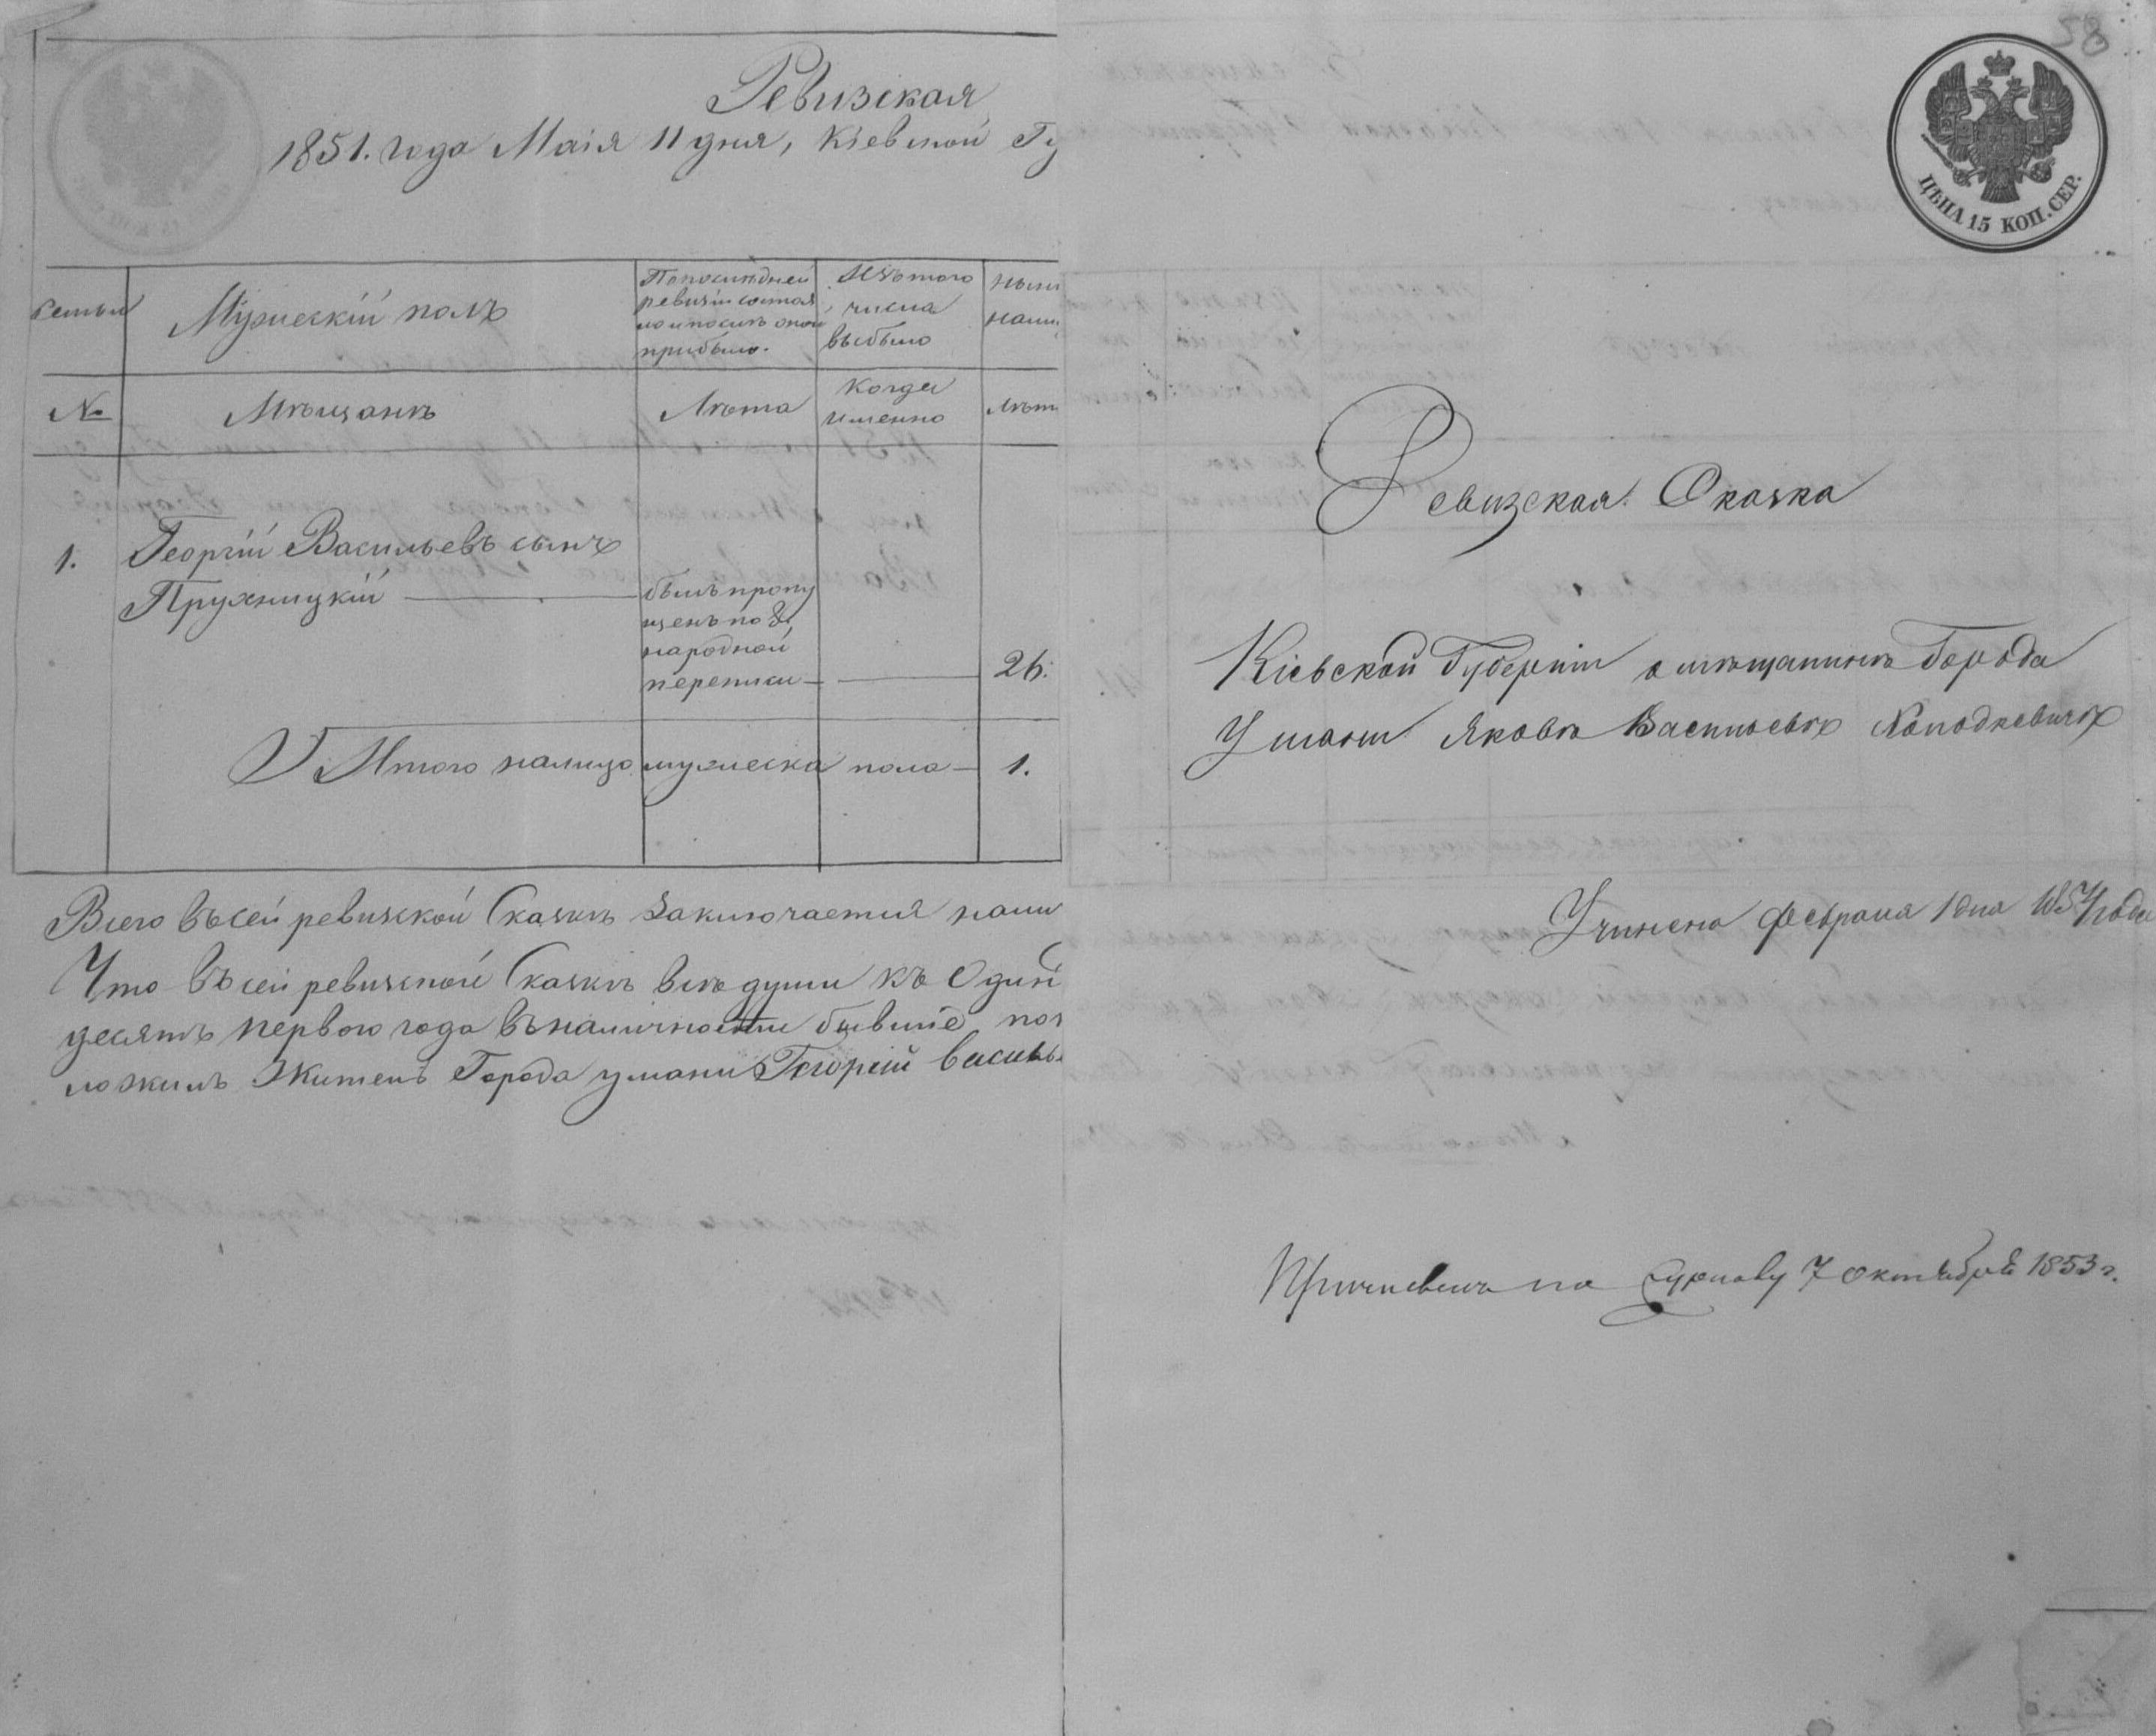 Ревизская
1851. года Маія 11 дня, Кіевской Гу
семьи
Мужескій полъ
По последней
ревизіи состоя
ло и после оной
прибыло.
Изъ того
числа
выбыло
ныне
нали
№
Мѣщанъ
Лѣта
Когда
именно
Лѣт
1.
Георгій Васильевъ сынъ
Пружницкій
былъ пропу
щенъ по 8й
народной
переписи
26.
Итого налицо мужеска пола — 1.
Всего въ сей ревизской Сказкѣ Заключается нали
Что въ сей ревизской Сказкѣ всѣ души къ Один
десятъ первого года въ наличности бывшіе, пог
ложилъ Житель Города умани Георгій василь
58
ЦѢНА 15 КОП. СЕР.
Ревизская Сказка
Кіевской Губерніи о мѣщанинѣ Города
Умани Яковѣ Васильевѣ
Учинена Февраля 1 дня 1851 года
по 7 октября 1853 г.